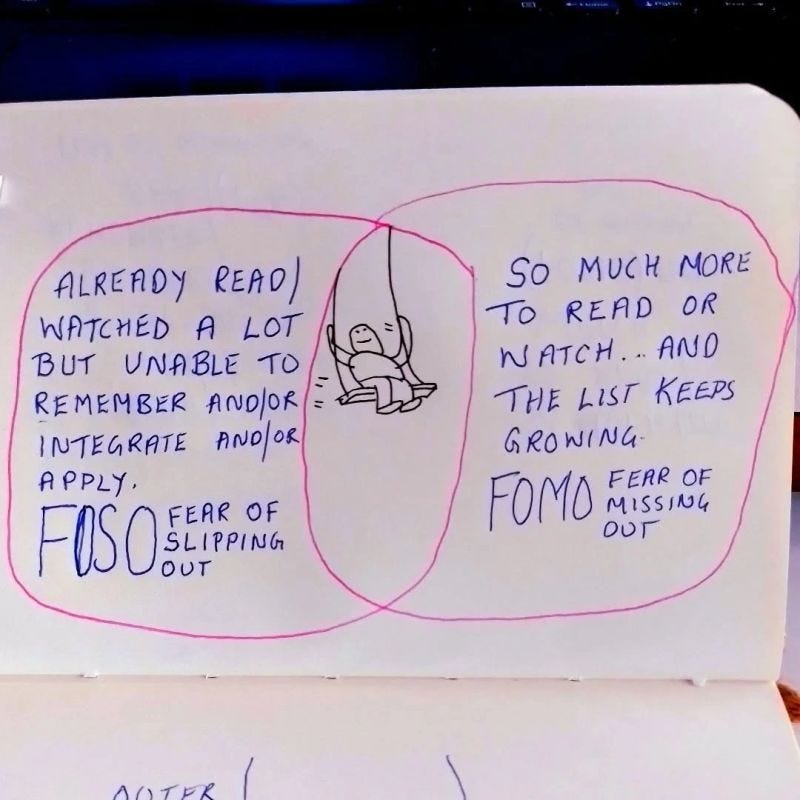 ALREADY READ/
WATCHED A LOT
BUT UNABLE TO
REMEMBER AND/OR
INTEGRATE AND/OR
APPLY.
FOSO FEAR OF
SLIPPING
OUT
SO MUCH MORE
TO READ OR
WATCH... AND
THE LIST KEEPS
GROWING.
FOMO FEAR OF
MISSING
OUT
OUTER